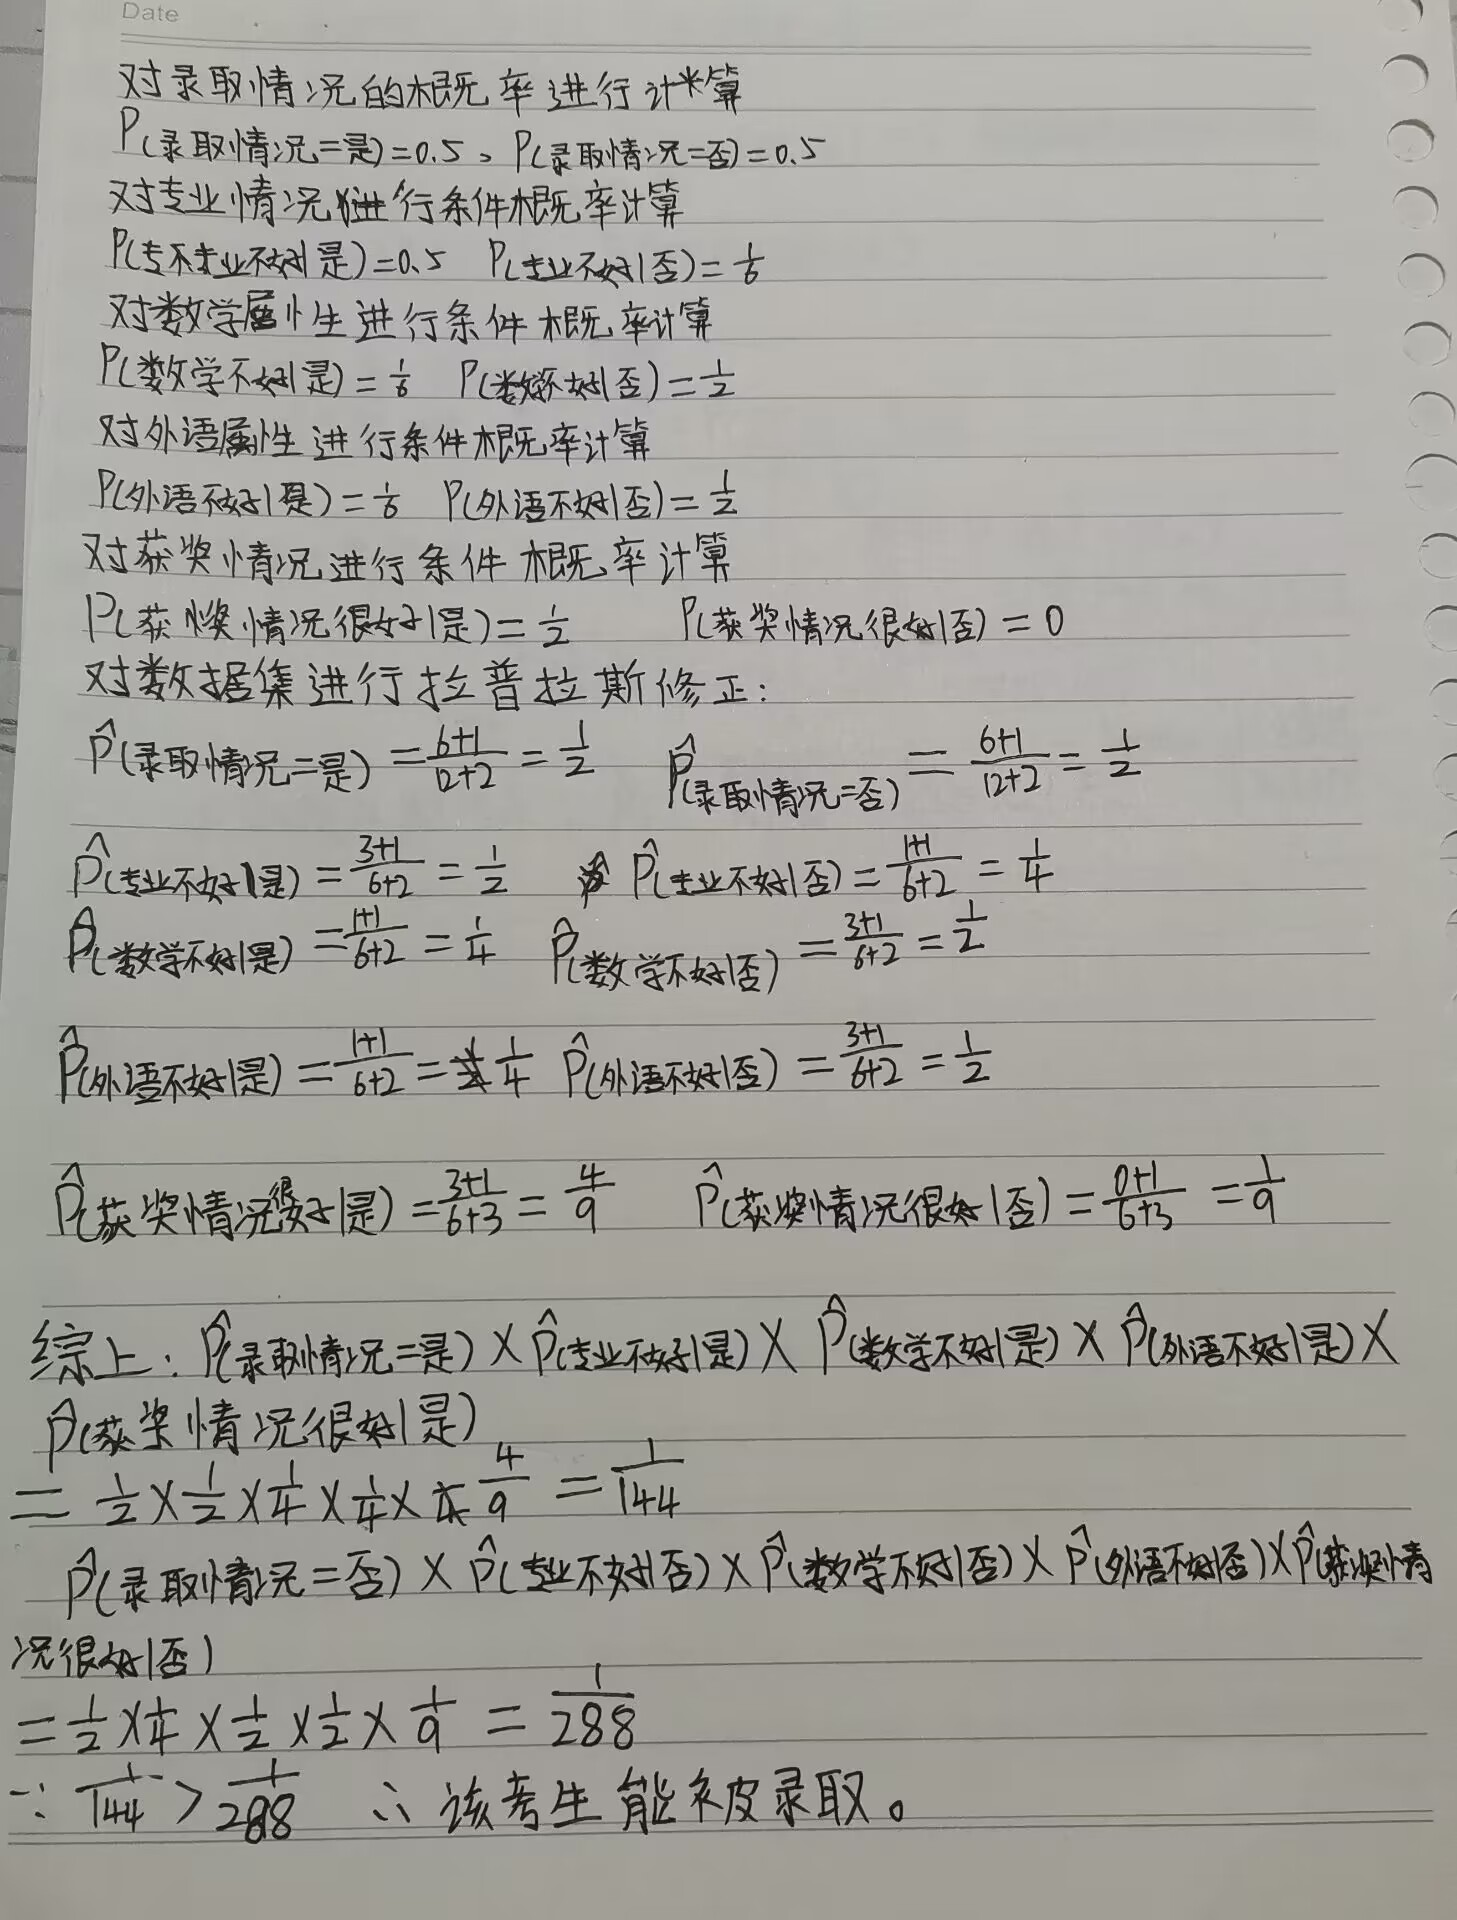 Date
对录取情况的概率进行计算
P(录取情况=是)=0.5、P(录取情况=否)=0.5
对专业情况进行条件概率计算
P(专业不好|是)=0.5 P(专业不好|否)=1/6
对数学属性进行条件概率计算
P(数学不好|是)=1/6 P(数学不好|否)=1/2
对外语属性进行条件概率计算
P(外语不好|是)=1/6 P(外语不好|否)=1/2
对获奖情况进行条件概率计算
P(获奖情况很好|是)=1/2 P(获奖情况很好|否)=0
对数据集进行拉普拉斯修正:
P̂(录取情况=是)=6+1/12+2=1/2 P̂(录取情况=否)=6+1/12+2=1/2
P̂(专业不好|是)=3+1/6+2=1/2 P̂(专业不好|否)=1+1/6+2=1/4
P̂(数学不好|是)=1+1/6+2=1/4 P̂(数学不好|否)=3+1/6+2=1/2
P̂(外语不好|是)=1+1/6+2=1/4 P̂(外语不好|否)=3+1/6+2=1/2
P̂(获奖情况很好|是)=3+1/6+3=4/9 P̂(获奖情况很好|否)=0+1/6+3=1/9
综上:P̂(录取情况=是)×P̂(专业不好|是)×P̂(数学不好|是)×P̂(外语不好|是)×
P̂(获奖情况很好|是)
=1/2×1/2×1/4×1/4×4/9=1/144
P̂(录取情况=否)×P̂(专业不好|否)×P̂(数学不好|否)×P̂(外语不好|否)×P̂(获奖情
况很好|否)
=1/2×1/4×1/2×1/2×1/9=1/288
∵1/144>1/288 ∴该考生能被录取。